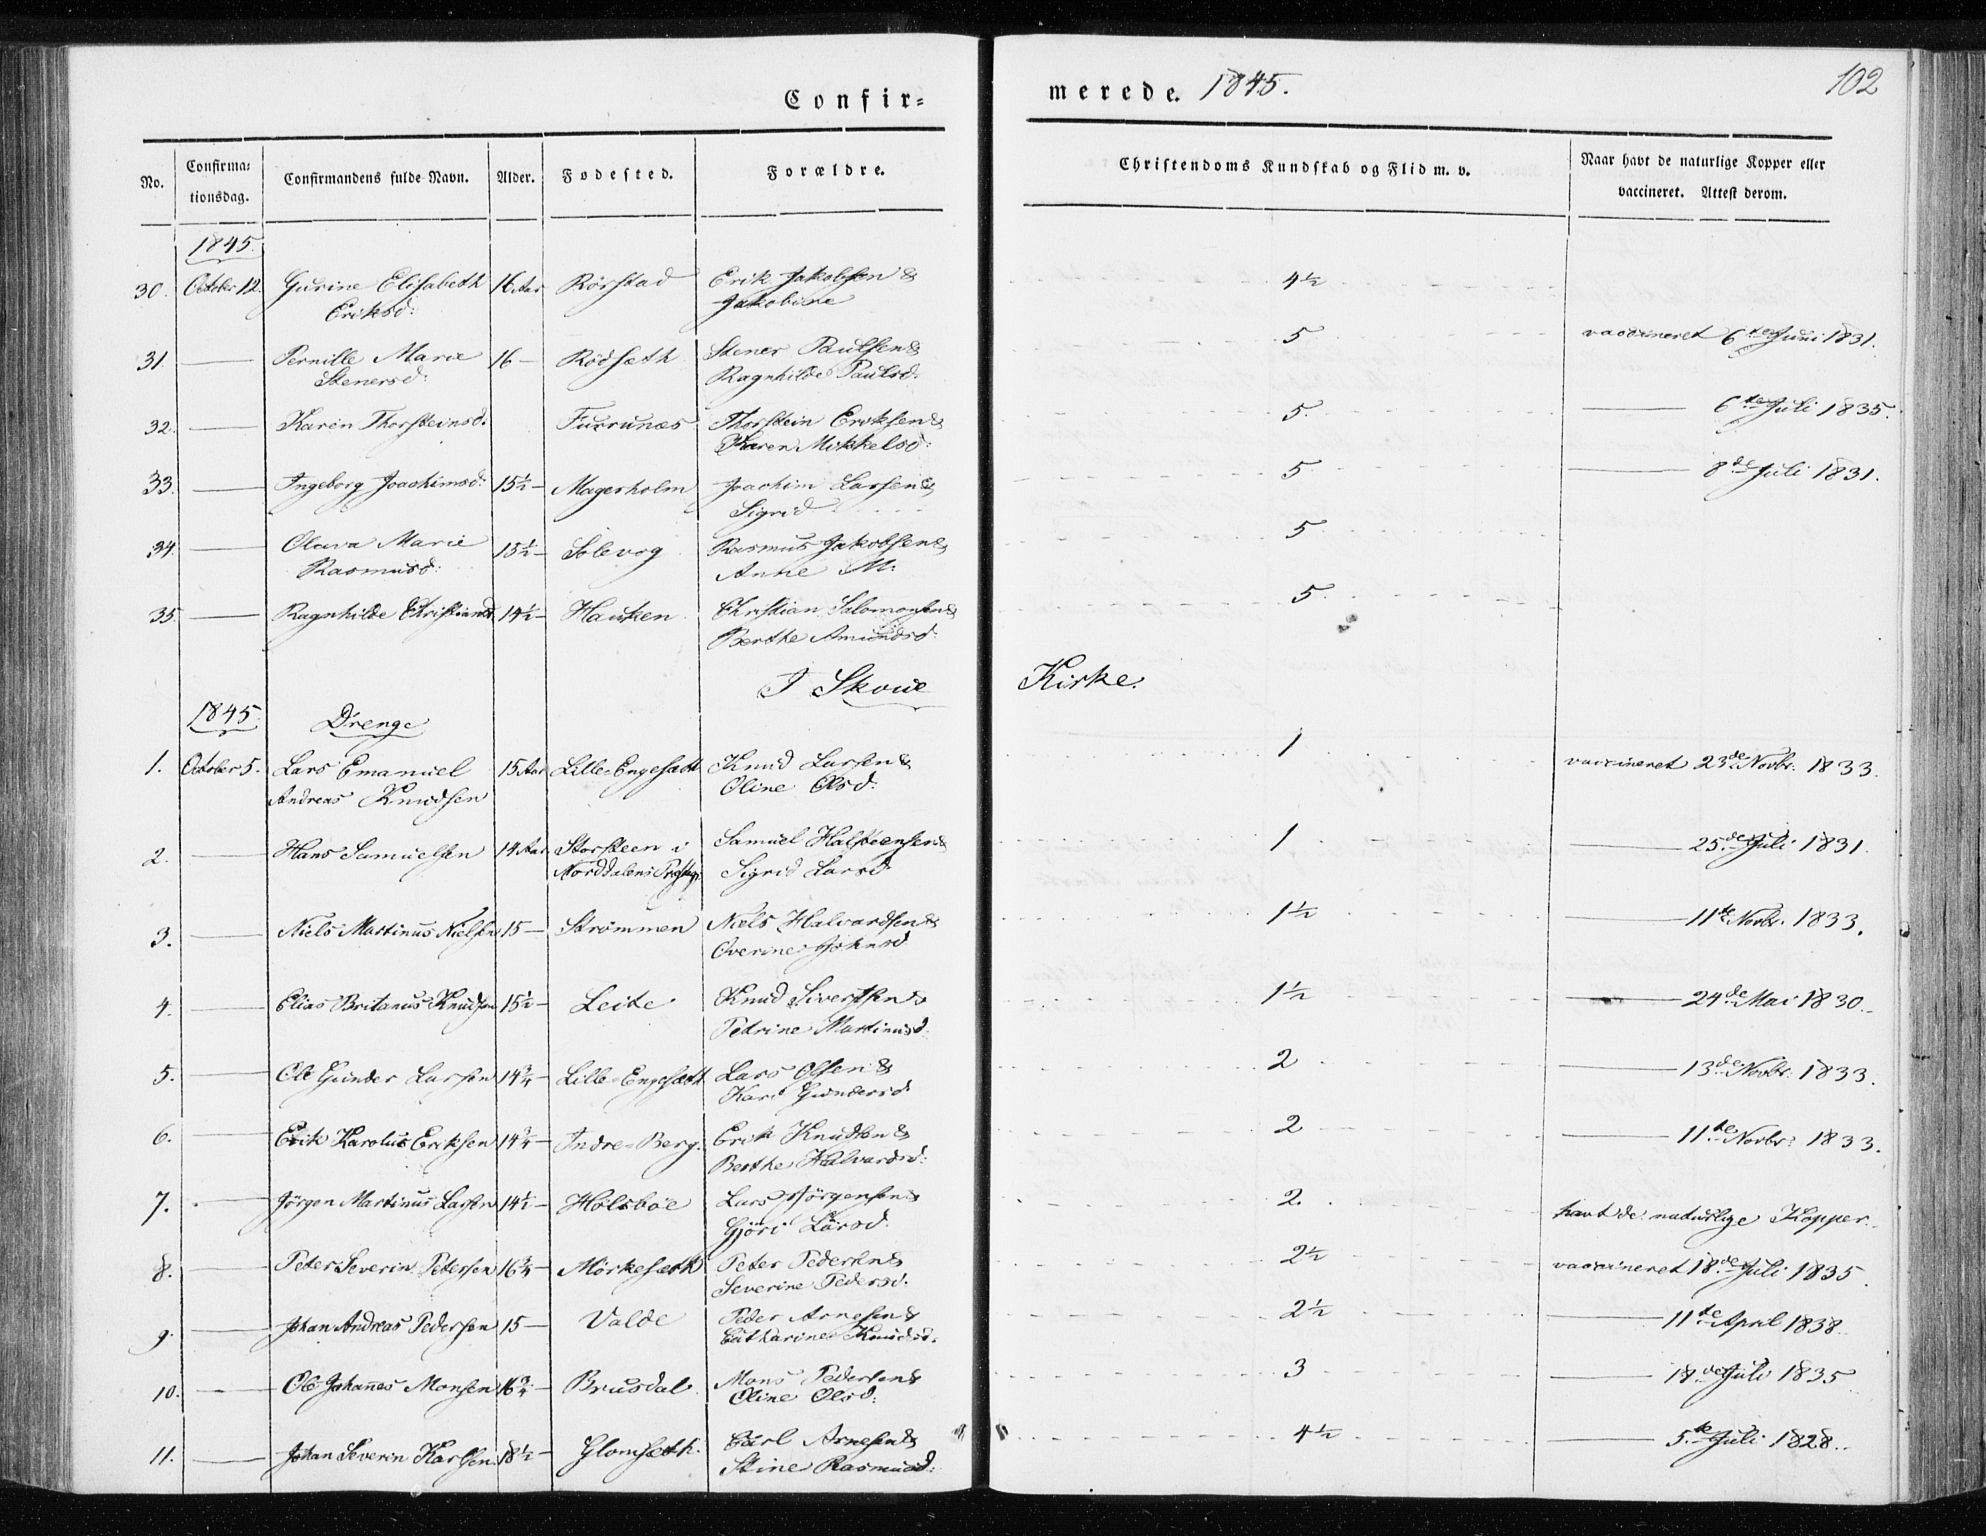 Confir= merede. 1845. 102
No. Confirma= tionsdag. Confirmandens fulde Navn. Alder. Fødested. Forældre. Christendoms Kundskab og Flid m. v. Naar havt de naturlige Kopper eller vaccineret. Attest derom.
1845.
30. October 12. Gurine Elisabeth 16 Aar Rörstad Erik Jakobsen & 4½
Eriksd: Jakobine
31. — Pernille Marie 16 — Rödsæth Stener Paulsen & 5 vaccineret 6te Juni 1831.
Stenersd: Ragnhilde Paulsd:
32. — Karen Thorsteinsd: Furrunæs Thorstein Eriksen & 5. — 6te Juli 1835.
Karen Mikkelsd:
33. — Ingeborg Joachimsd: 15½ — Magerholm Joachim Larsen & 5 — 8de Juli 1831.
Sigrid
34. — Olava Marie 15½ — Solevog Rasmus Jakobsen & 5
Rasmusd: Anne M:
35. — Ragnhilde Christiansd 14½ — Hauken Christian Salomonsen & 5.
Berthe Amundsd:
I Skoue Kirke.
1845. Drenge
1. October 5. Lars Emanuel 15 Aar Lille-Engesæth Knud Larsen & 1 vaccineret 23de Novbr: 1833.
Andreas Knudsen Oline Olsd:
2. — Hans Samuelsen 14 Aar Storsteen i Samuel Halsteensen & 1 — 25de Juli 1831.
Norddalens Prstgj. Sigrid Larsd.
3. — Niels Martinus Nielsen 15 — Strømmen Niels Halvardsen & 1½ — 11te Novbr. 1833.
Overine Johnsd
4. — Elias Britanus Knudsen 15½ — Leite Knud Sivertsen & 1½ — 24de Mai 1830.
Petrine Martinusd.
5. — Ole Gunder Larsen 14¾ — Lille-Engesæth Lars Olsen & 2 — 13de Novbr: 1833.
Kari Gundersd.
6. — Erik Karolus Eriksen 14¾ — Indre-Berg. Erik Knudsen & 2 — 11te Novbr: 1833.
Berthe Halvardsd:
7. — Jörgen Martinus Larsen 14½ — Holsböe Lars Jörgensen & 2. havt de naturlige Kopper.
Gjöri Larsd.
8. — Peter Severin Petersen 16¾ — Mörkesæth Peter Pedersen & 2½ vaccineret 18de Juli 1835.
Severine Pedersd:
9. — Johan Andreas Pedersen 15 — Valde Peder Arnesen & 2½ — 11te April 1838.
Catharine Knudsd.
10. — Ole Johannes Monsen 16¾ — Brusdal Mons Pedersen & 3 — 18de Juli 1835
Oline Olsd:
11. — Johan Severin Karlsen 18½ — Glomsæth. Carl Arnesen & 4½ — 5te Juli 1828.
Stine Rasmusd: